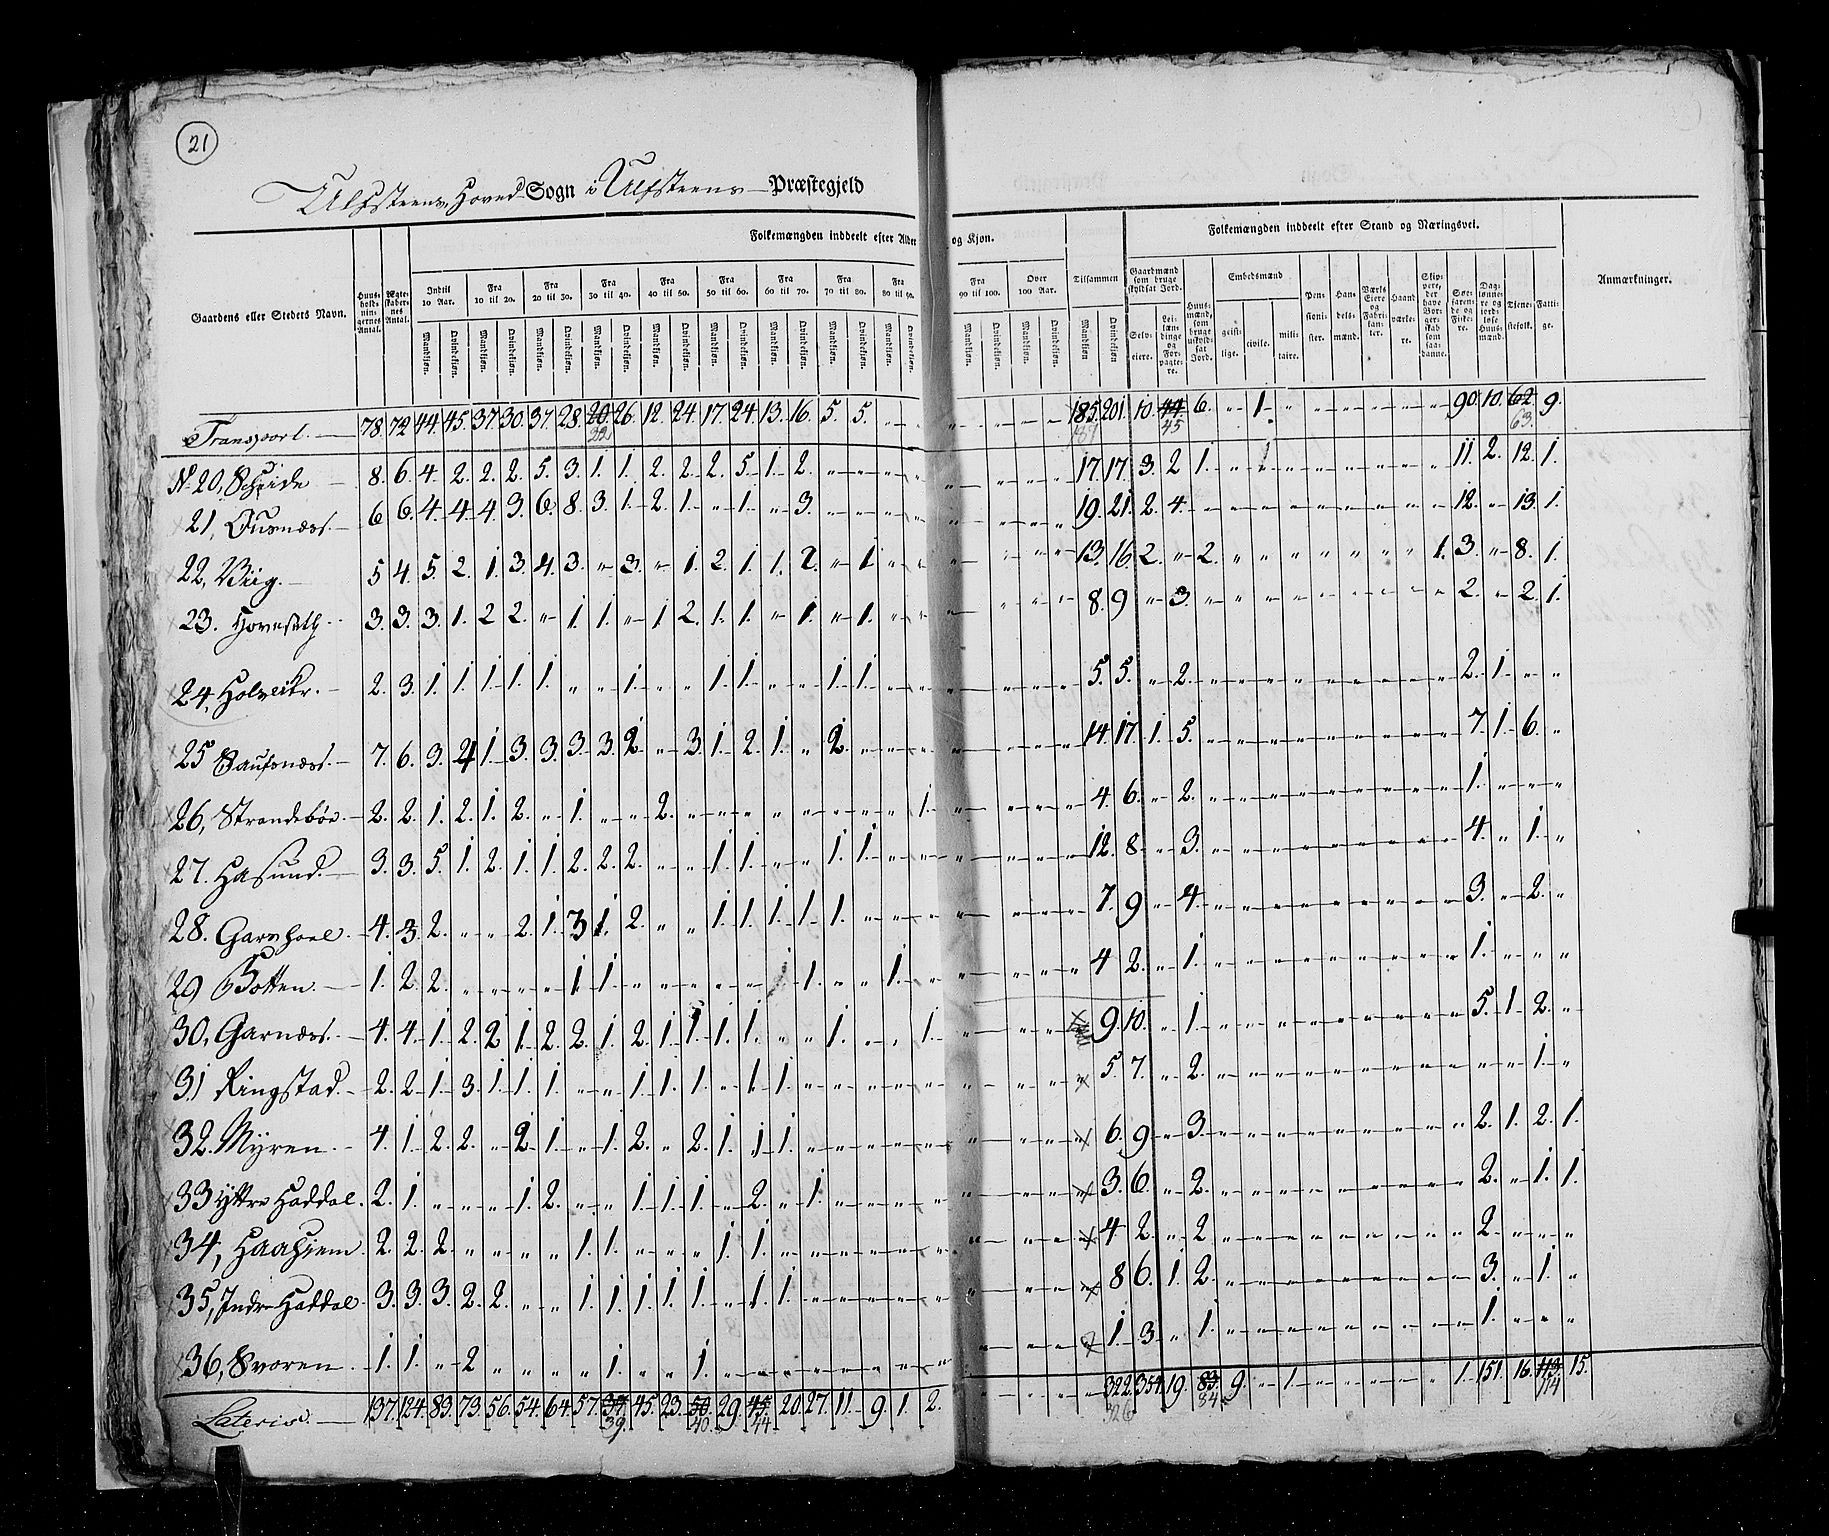 21
Ulfsteens Hoved Sogn i Ulfsteens Præstegjeld
Gaardens eller Steders Navn.
Huus-holdnin-gernes Antal.
Ægte-skaber-nes Antal.
Folkemængden inddeelt efter Alder og Kjøn.
Indtil 10 Aar.
Fra 10 til 20.
Fra 20 til 30.
Fra 30 til 40.
Fra 40 til 50.
Fra 50 til 60.
Fra 60 til 70.
Fra 70 til 80.
Fra 80 til 90.
Fra 90 til 100.
Over 100 Aar.
Tilsammen
Mandkjøn. Qvindekjøn.
Folkemængden inddeelt efter Stand og Næringsvei.
Gaardmænd som bruge skyldsat Jord.
Selv-eiere.
Lei-læn-dinge og For-pagte-re.
Huus-mænd, som bruge uskyld-sat Jord.
Embedsmænd
geist-lige. civile. mili-taire.
Pen-sioni-ster.
Han-dels-mænd.
Værks Eiere og Fabri-kan-ter.
Haand værke-re.
Skip-pere, der have Bor-ger-skab som saa-danne.
Søe-faren-de og Fiske-re.
Dag-lønne-re og jord-løse Huus-mænd.
Tjene-stefolk.
Fatti-ge.
Anmærkninger.
Transport. 78. 72. 44. 45. 37. 30. 37. 28. 20. 26. 12. 24. 17. 24. 13. 16. 5. 5. " " 185. 201. 10. 44. 6. " 1. " 90. 10. 62. 9.
22 187 45 63.
N 20, Scheide 8. 6. 4. 2. 2. 2. 5. 3. 1. 1. 2. 2. 2. 5. 1. 2. " " 17. 17. 3. 2. 1. " 1 " 11. 2. 12. 1.
21, Ousnæs. 6 6. 4. 4. 4. 3. 6. 8. 3. 1. 2. 1. " 1. " 3. " " 19. 21. 2. 4. " 12. " 13. 1.
22, Viig. 5 4. 5. 2. 1. 3. 4. 3. " 3. " 1. 2. 1. 1. 2. " 1. " 13. 16. 2. " 2. " 1. 3. " 8. 1.
23. Hovnseth 3. 3. 3. 1. 2 2. " 1. 1. " 1 2. 1. 1. " 1. " 1. " 8. 9 " 3. " 2. " 2. 1.
24, Holveikr. 2. 3. 1. 1. 1. 1. 1. " " 1. " " 1. 1. " " 1. 1. " 5. 5. " 2. " 2. 1. " "
25 Saufsnæs. 7. 6. 3. 4 1. 3. 3. 3. 3. 2. " 3. 1. 2. 1. " 2. " 14. 17. 1. 5. " 7. 1. 6. "
26, Strandebøe. 2. 2. 1. 2. 1. 2. " 1. " " 2. " " " " " " " " 1. " 4. 6. " 2. " 1. " " "
27. Hasund. 3. 3. 5. 1. 2. 1. 1. 2. 2. 2. " " 1. 1. " " 1. 1. " 12. 8. " 3. " 4. " 1. "
28. Garshoel. 4. 3. 2. " " 2. 1. 3 1. 2. " " 1. 1. 1. 1. 1. " 7. 9 " 4. " 3. " 2. "
29 Botten. 1. 2. 2. " " " " 1. 1. " " " " " " 1. " " 1. " 4 2. " 1. " 1. " " "
30, Garnæs. 4. 4. 1. 2. 2 1. 2. 2. 1. 2. 1. 1. 1. 1. " " 1. " " 1. " 9. 10. " 1. " 5. 1. 2. "
31 Ringstad. 2. 2. 1. 3. 1. 1. 1. " " 1. 1. 1. " 1. 1. " 5. 7. " 2. " " " 1. "
32. Myren. 4. 1. 2. 2. " 2. 1. " 1. 2. " 2. 1. 1. 1. " 6. 9 " 3. " 2. 1. 2. 1.
33 Yttre Haddal. 2. 1. " " " 1. 2. " " 1. 1. 1. " 2. " 1. " 3. 6. " 2. " 2. " 1. 1.
34, Haahjem 2. 2. 2. " " " " 1. 1. " " " 1. 1. " 4 2. " 2 " 2. " " "
35, Indre Haddal. 3. 3. 3. 2. 2. " " 1. 1. 1. 1. 1. " 1. 1. " 8 6. 1. 2. " 3. " 1. "
36, Svoren. 1. 1. " 2 " " " " 1. " " 1. " 1. 3. " 1. " 1. " " "
Lateris. 137. 124. 83. 73. 56. 54. 64. 57. 37. 45. 23. 50. 29. 45. 20. 27. 11. 9. 1. 2. " 322. 354. 19. 83. 9. " 1. " 1. 151. 16. 113. 15.
39. 40. 44 326 84 114